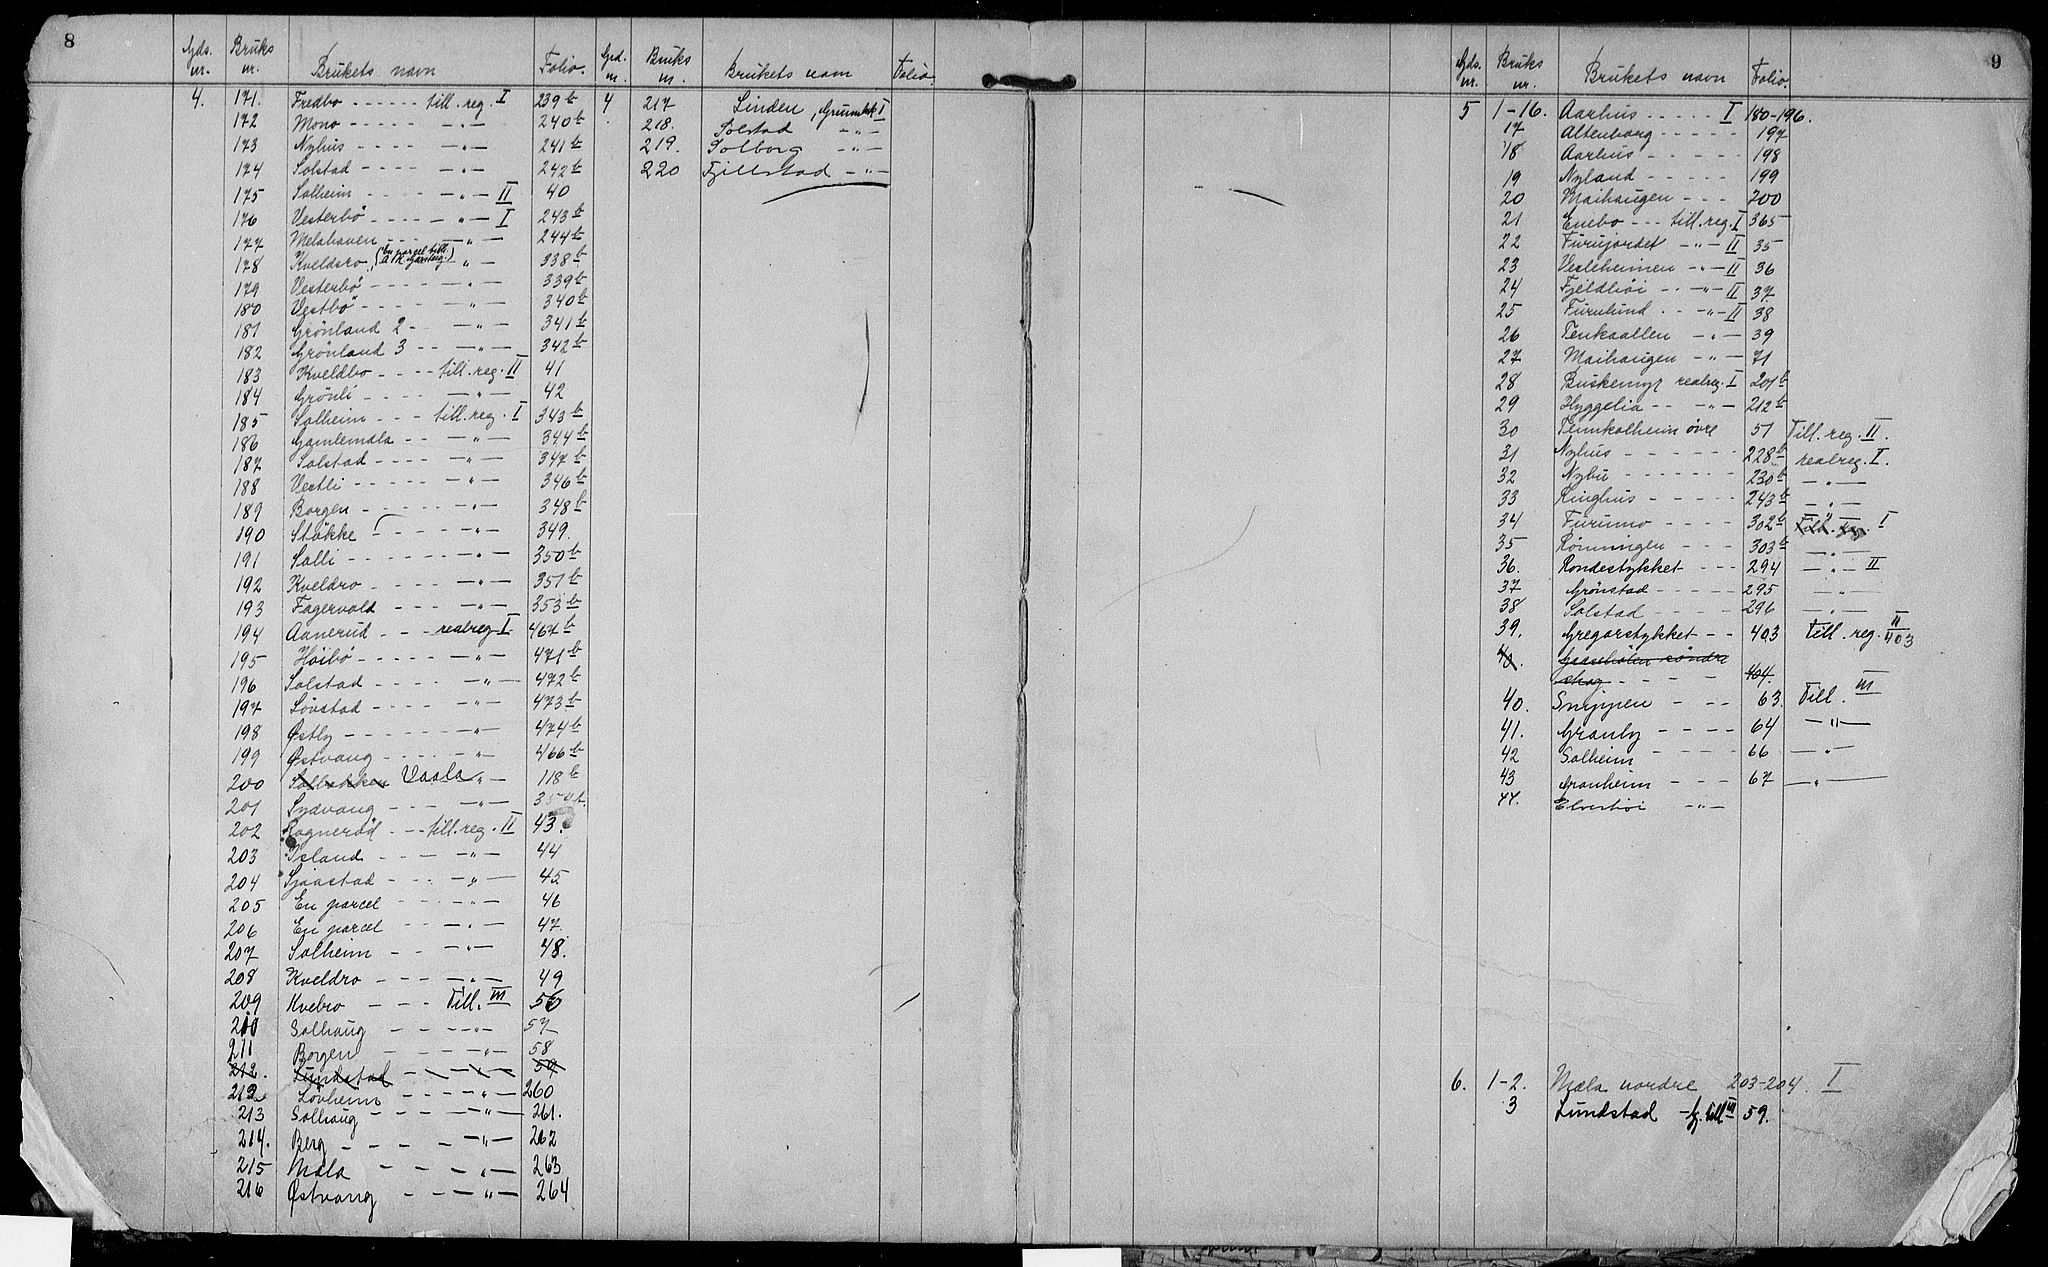 8
Gds. nr. Bruks nr. Brukets navn Folio. Grd. nr. Bruks nr. Brukets navn Folio.
4. 171. Fredbo - - - - - till. reg. I 239 b
172 Mono - - - - - - „ - 240 b
173 Nyhus - - - - - „ - 241 b
174 Solstad - - - - - „ - 242 b
175 Solheim - - - - - „ - II 40
176 Vesterbö - - - - - „ - I 243 b
177 Melahaven - - - - „ - 244 b
178 Kveldsro (En parcel till. ) - „ - 338 b
179 Vesterbö - - - - - „ - 339 b
180 Vestbö - - - - - „ - 340 b
181 Grönland 2 - - „ - 341 b
182 Grönland 3 - - - „ - 342 b
183 Kveldbo - - - - till. reg. II 41
184 Grönli - - - - - „ - 42
185 Solheim - - - till. reg. I 343 b
186 Gamlemala - - - „ - 344 b
187 Solstad - - - - - „ - 347 b
188 Vestli - - - - - „ - 346 b
189 Borgen - - - - - „ - 348 b
190 Stökke - - - - „ - 349.
191 Solli - - - - - „ - 350 b
192 Kveldro - - - - „ - 351 b
193 Fagervold - - - - „ - 353 b
194 Aanerud - - - realreg I 467 b
195 Höibö - - - - - „ - 471 b
196 Solstad - - - - - „ - 472 b
197 Lövstad - - - - - „ - 473 b
198 Østby - - - - - „ - 474 b
199 Østvang - - - - - „ - 466 b
200 Solbakken Vaala „ - 118 b
201 Sydvang - - - - „ -
202 Ragneröd - - till. reg. II 43.
203 Island - - - - „ - 44
204 Sjaastad - - - - „ - 45
205 En parcel - - - „ - 46
206 En parcel - - - „ - 47.
207 Solheim - - - - „ - 48.
208 Kveldro - - - - „ - 49
209 Kvebro - - - Till. III 56
210 Solhaug - - - - „ 57
211 Borgen - - - - „ - 58
212. Lundstad - - - - 59
212 Lövheim - - - - „ - 260
213 Solhaug - - - - „ - 261.
214. Berg - - - - - „ - 262
215 Mæla - - - - „ - 263
216 Østvang - - - „ - 264
4 217 Linden, Grundbok I
218. Solstad - „ -
219. Solborg - „ -
220 Fjellstad - „ -
9
Gds. nr. Bruks nr. Brukets navn Folio.
5 1-16. Aarhus - - - - - I 180-196.
17 Altenborg - - - - - 197
18 Aarhus - - - - - 198
19 Nyland - - - - - 199
20 Maihaugen - - - 200
21 Enebo - - - till. reg. I 365
22 Furujordet - „ - II 35
23 Vesleheimen - „ - II 36
24 Fjeldhöi - - „ - II 37
25 Furulund - - „ - II 38
26 Tenkaallen - „ - 39
27 Maihaugen - „ - 71
28 Buskemyr realreg. I 201 b
29 Hyggelia - - - „ - 212 b
30 Tennkolheim övre 51 Till. reg. II.
31 Nyhus - - - - - - 228 b realreg. I.
32 Nybu - - - - - - 230 b - „ -
33 Ringhus - - - - - 243 b - „ -
34 Furumo - - - - 302 b Till. reg. I
35 Rönningen - - - 303 b - „ -
36. Rondestykket - - - 294 - „ - II
37 Grönstad - - - - 295 - „ -
38 Solstad - - - - - 296 - „ -
39. Gregarstykket - - 403 Till. reg. II 403
40. söndre
skog - - - - - 404.
40. Snippen - - - 63. Till. III
41. Granly - - - - 64 - „ -
42 Solheim 66 - „ -
43 Granheim - - - 67 - „ -
44. Elverhöi - „ -
6. 1-2. Mæla nordre 203-204. I
3 Lundstad - till III 59.